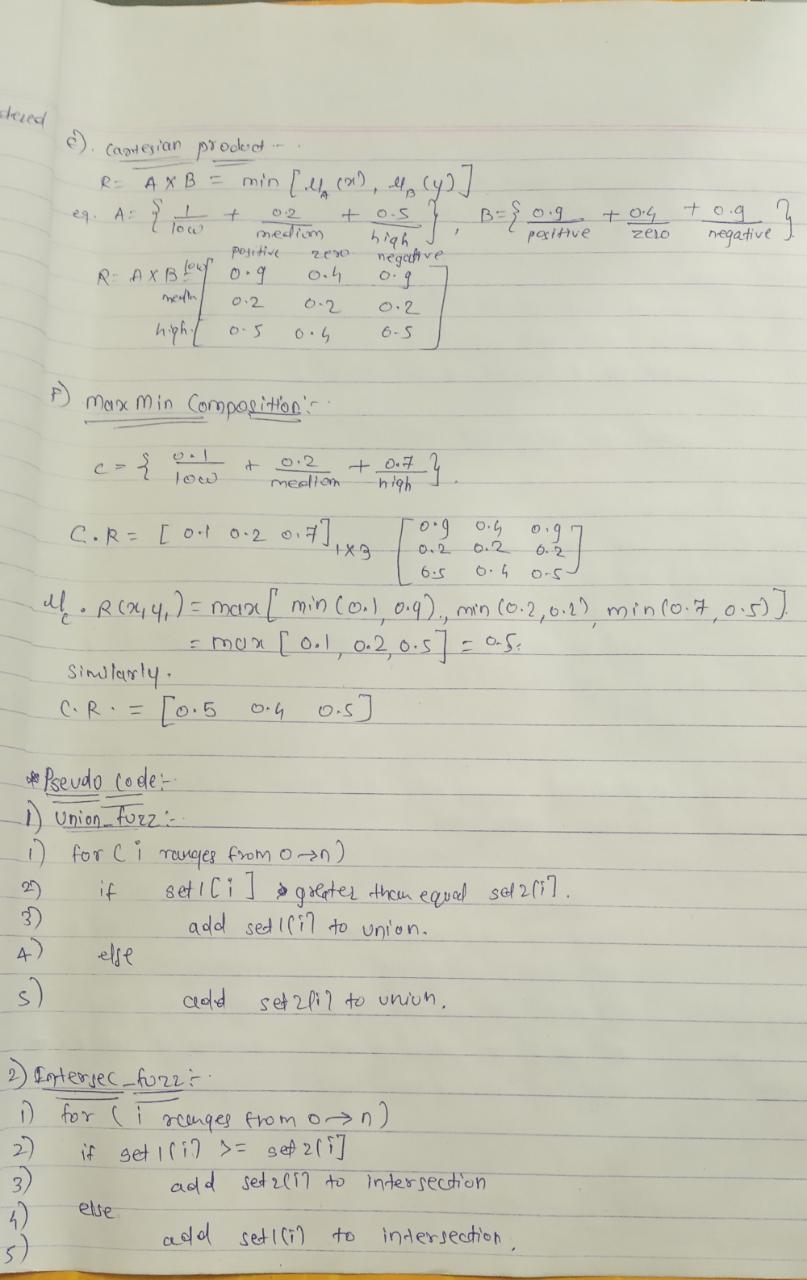 stered
e). Cartesian product :-
R = A X B = min [ μA (x), μB (y) ]
eg. A = { 1/low + 0.2/medium + 0.5/high }, B = { 0.9/positive + 0.4/zero + 0.9/negative }
positive zero negative
R = A X B = low [ 0.9 0.4 0.9
medm 0.2 0.2 0.2
high 0.5 0.4 0.5 ]
F) max min Composition :-
C = { 0.1/low + 0.2/medium + 0.7/high }.
C . R = [ 0.1 0.2 0.7 ]1X3 [ 0.9 0.4 0.9
0.2 0.2 0.2
0.5 0.4 0.5 ]
μC . R(x1, y1) = max [ min (0.1, 0.9), min (0.2, 0.2), min (0.7, 0.5) ].
= max [ 0.1, 0.2, 0.5 ] = 0.5.
Similarly.
C. R . = [ 0.5 0.4 0.5 ]
* Pseudo Code :-
1) Union_fuzz :-
1) for ( i ranges from 0 → n )
2) if set1[i] greater than equal set2[i].
3) add set1[i] to union.
4) else
5) add set2[i] to union.
2) Intersec_fuzz :-
1) for ( i ranges from 0 → n )
2) if set1[i] >= set2[i]
3) add set2[i] to intersection
4) else
5) add set1[i] to intersection.